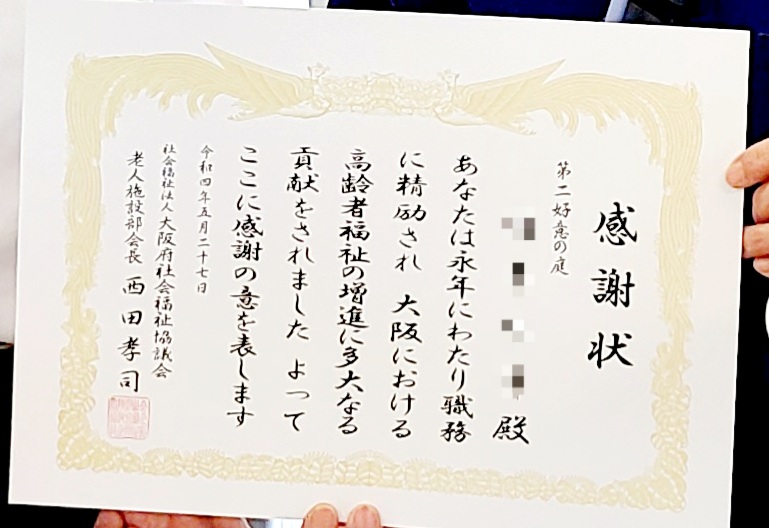 感謝状
第二好意の庭
殿
あなたは永年にわたり職務
に精励され 大阪における
高齢者福祉の増進に多大なる
貢献をされました よって
ここに感謝の意を表します
令和四年五月二十七日
社会福祉法人大阪府社会福祉協議会
老人施設部会長 西田孝司